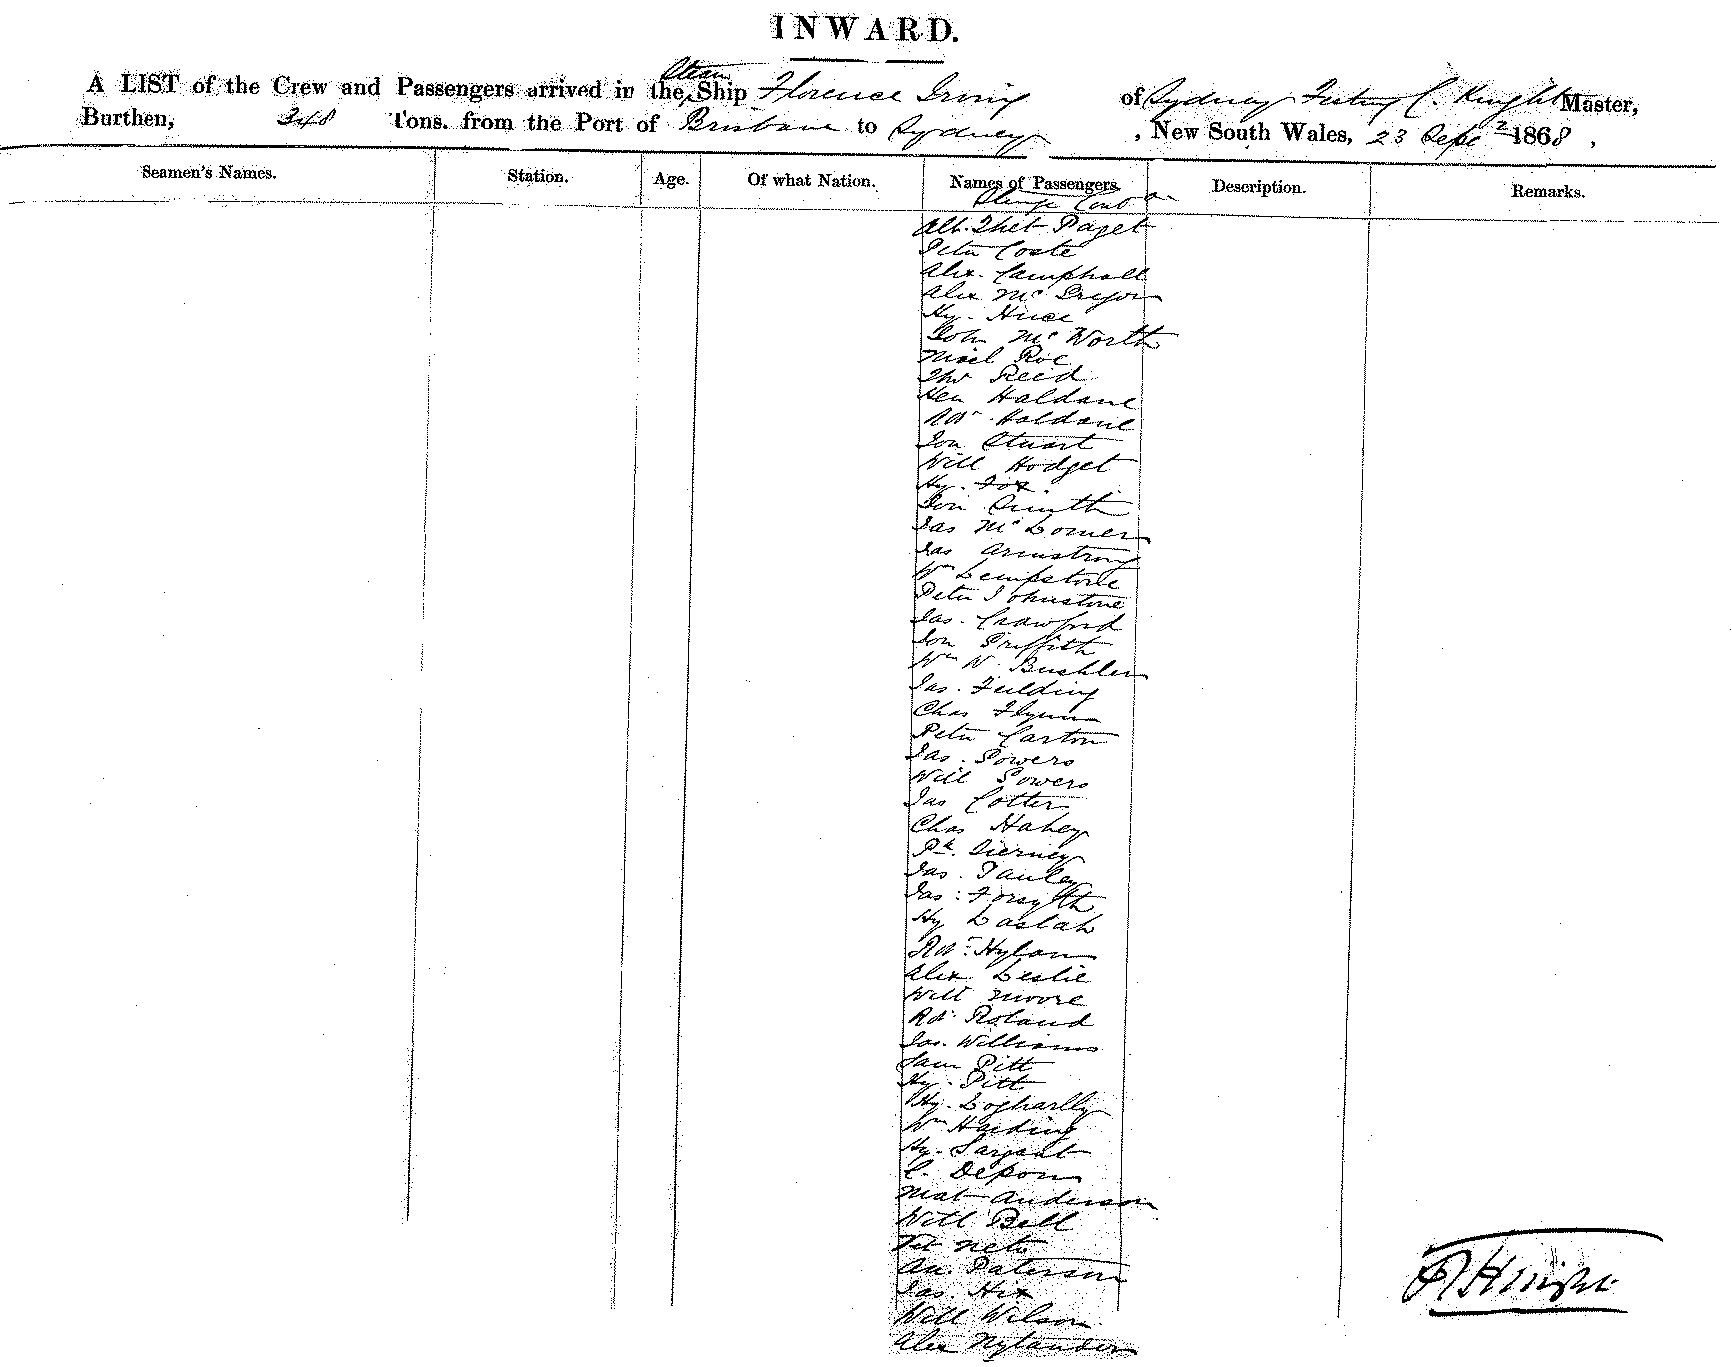 INWARD.
A LIST of the Crew and Passengers arrived in the Steam Ship Florence Irving of Sydney C. Knight Master,
Burthen, 248 Tons. from the Port of Brisbane to Sydney, New South Wales, 23 Sept 1868,
Seamen's Names. Station. Age. Of what Nation. Names of Passengers. Description. Remarks.
Paget
Peter Coste
Alex. Camphall
Alex McGregor
Hy. Huce
John McWorth
Micl Roe
Tho Reid
Hen Haldane
Rd. Haldane
Jon Stuart
Will Hodget
Hy. Fox
Jon Smith
Jas McLomer
Jas Armstrong
Wm Lempstone
Peter Johnstone
Jas. Crawford
Jon Griffith
Wm W. Bushler
Jas. Fulding
Chas Flynn
Peter Carton
Jas. Powers
Will Powers
Jas Cotter
Chas Hahey
Pk. Tierney
Jas. Pauley
Jas. Forsyth
Hy Laslah
Rd. Hylan
Alex Leslie
Will Moore
Rd. Roland
Jas. Williams
Sam Pitt
Hy. Pitt
Hy. Logharlly
Wm Harding
Hy. Sargent
C. Depon
Mat Anderson
Will Bell
An. Paterson
Jas. Hix
Will Wilson
Alex Nylander
Knight